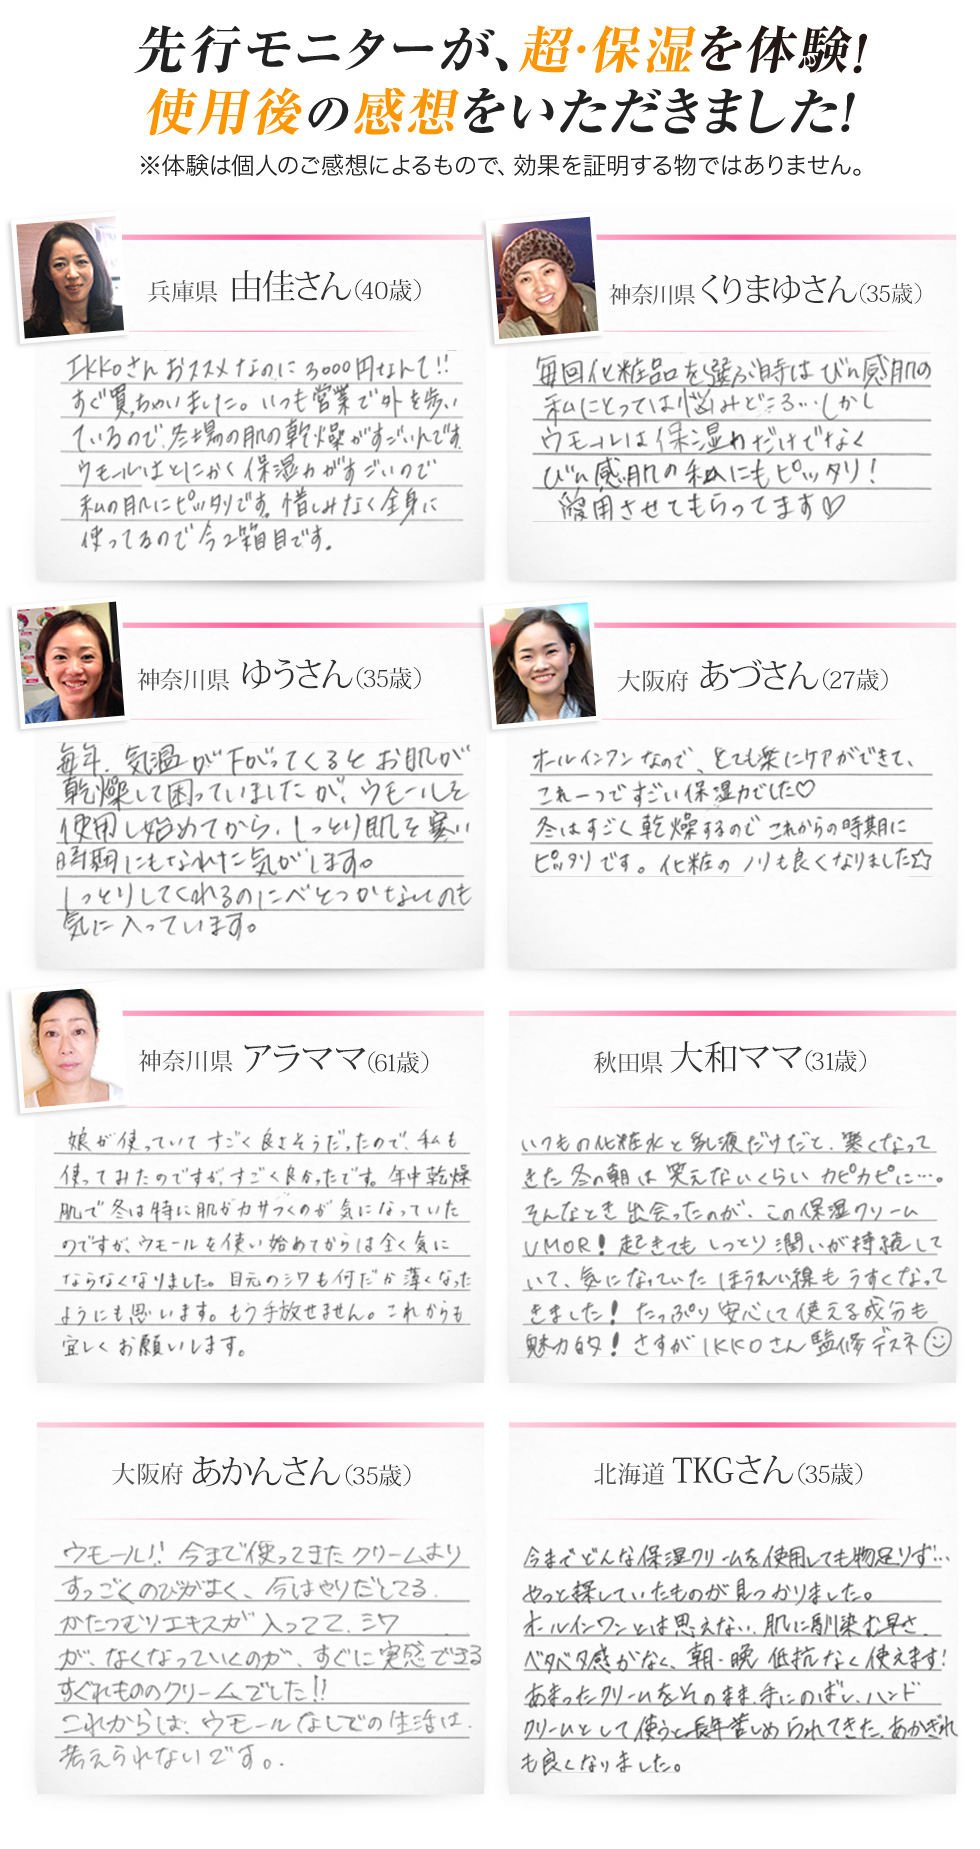 先行モニターが、超・保湿を体験!
使用後の感想をいただきました!
※体験は個人のご感想によるもので、効果を証明する物ではありません。
兵庫県 由佳さん(40歳)
IKKOさんおススメなのに3000円なんて!!
すぐ買っちゃいました。いつも営業で外を歩い
ているので、冬場の肌の乾燥がすごいんです。
ウモールはとにかく保湿力がすごいので
私の肌にピッタリです。惜しみなく全身に
使ってるので今2箱目です。
神奈川県 くりまゆさん(35歳)
毎回化粧品を選ぶ時はびん感肌の
私にとっては悩みどころ…しかし
ウモールは保湿力だけでなく
びん感肌の私にもピッタリ!
愛用させてもらってます♡
神奈川県 ゆうさん(35歳)
毎年、気温が下がってくるとお肌が
乾燥して困っていましたが、ウモールを
使用し始めてから、しっとり肌を寒い
時期にもなれた気がします。
しっとりしてくれるのにべとつかないのも
気に入っています。
大阪府 あづさん(27歳)
オールインワンなので、とても楽にケアができて、
これ一つですごい保湿力でした♡
冬はすごく乾燥するのでこれからの時期に
ピッタリです。化粧のノリも良くなりました☆
神奈川県 アラママ(61歳)
娘が使っていてすごく良さそうだったので、私も
使ってみたのですが、すごく良かったです。年中乾燥
肌で冬は特に肌がカサつくのが気になっていた
のですが、ウモールを使い始めてからは全く気に
ならなくなりました。目元のシワも何だか薄くなった
ようにも思います。もう手放せません。これからも
宜しくお願いします。
秋田県 大和ママ(31歳)
いつもの化粧水と乳液だけだと、寒くなって
きた冬の朝は笑えないくらいカピカピに…。
そんなとき出会ったのが、この保湿クリーム
UMOR!起きてもしっとり潤いが持続して
いて、気になっていたほうれい線もうすくなって
きました!たっぷり安心して使える成分も
魅力的!さすがIKKOさん監修デスネ☺
大阪府 あかんさん(35歳)
ウモール!!今まで使ってきたクリームより
すっごくのびがよく、今はやりだしてる、
かたつむりエキスが入ってて、シワ
が、なくなっていくのが、すぐに実感できる
すぐれもののクリームでした!!
これからは、ウモールなしでの生活は、
考えられないです。
北海道 TKGさん(35歳)
今までどんな保湿クリームを使用しても物足りず…
やっと探していたものが見つかりました。
オールインワンとは思えない、肌に馴染む早さ、
ベタベタ感がなく、朝・晩 低抗なく使えます!
あまったクリームをそのまま手にのばし、ハンド
クリームとして使うと長年苦しめられてきた、あかぎれ
も良くなりました。